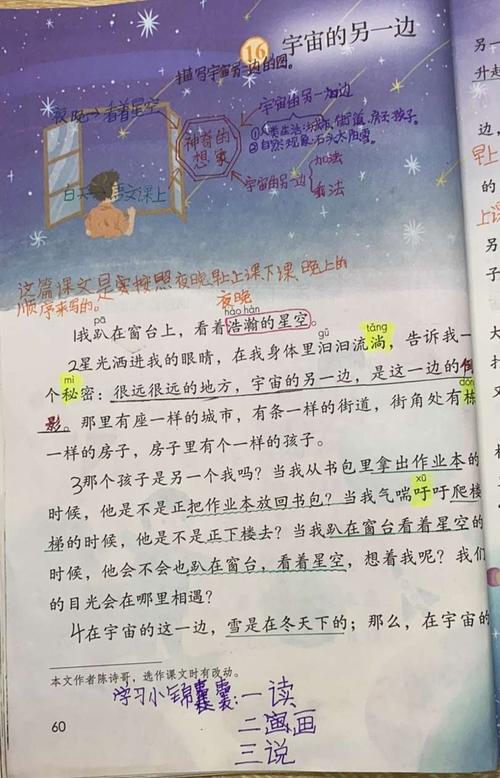 16 宇宙的另一边
描写宇宙另一边的图。
夜晚→看着星空
宇宙的另一边
神奇的
想象
白天→语文课上
宇宙的另一边
加法
乘法
夜晚
pā
hào hàn
1我趴在窗台上，看着浩瀚的星空。
gǔ
tǎng
2星光洒进我的眼睛，在我身体里汩汩流淌，告诉我一
mì
个秘密：很远很远的地方，宇宙的另一边，是这一边的倒
dòng
影。那里有座一样的城市，有条一样的街道，街角处有栋
一样的房子，房子里有个一样的孩子。
3那个孩子是另一个我吗？当我从书包里拿出作业本的
xū
时候，他是不是正把作业本放回书包？当我气喘吁吁爬楼
梯的时候，他是不是正下楼去？当我趴在窗台看着星空的
时候，他会不会也趴在窗台，看着星空，想着我呢？我们
的目光会在哪里相遇？
4在宇宙的这一边，雪是在冬天下的；那么，在宇宙的
本文作者陈诗哥，选作课文时有改动。
学习小锦囊：一读
二画画
三说
60
另一
升起
早上
的
上课